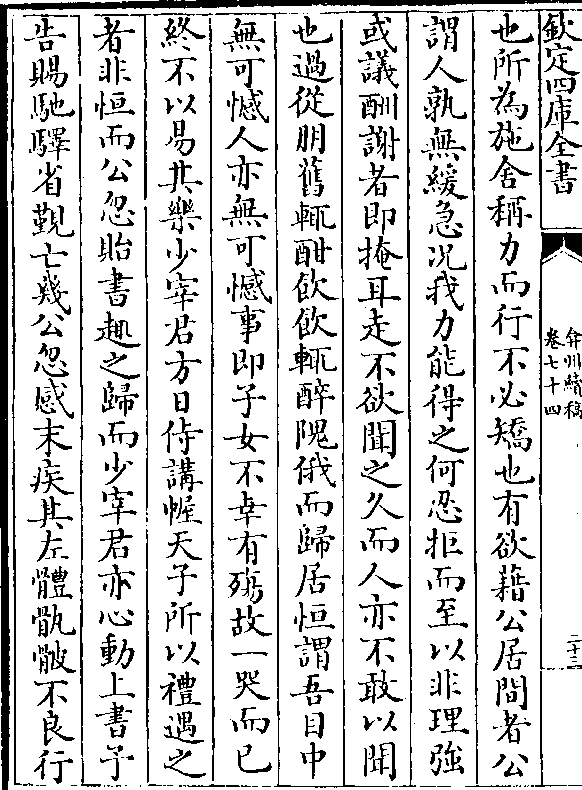 欽定四庫全書
弇州續稿
卷七十四
二十三
也所為施舍稱力而行不必矯也有欲藉公居間者公
謂人孰無緩急况我力能得之何忍拒而至以非理強
或議酬謝者即掩耳走不欲聞之久而人亦不敢以聞
也過從朋舊輒酣飲飲輒醉隗俄而歸居恒謂吾目中
無可憾人亦無可憾事即子女不幸有殤故一哭而已
終不以易其樂少宰君方日侍講幄天子所以禮遇之
者非恒而公忽貽書趣之歸而少宰君亦心動上書予
告賜馳驛省覲亡幾公忽感末疾其左體骫骳不良行